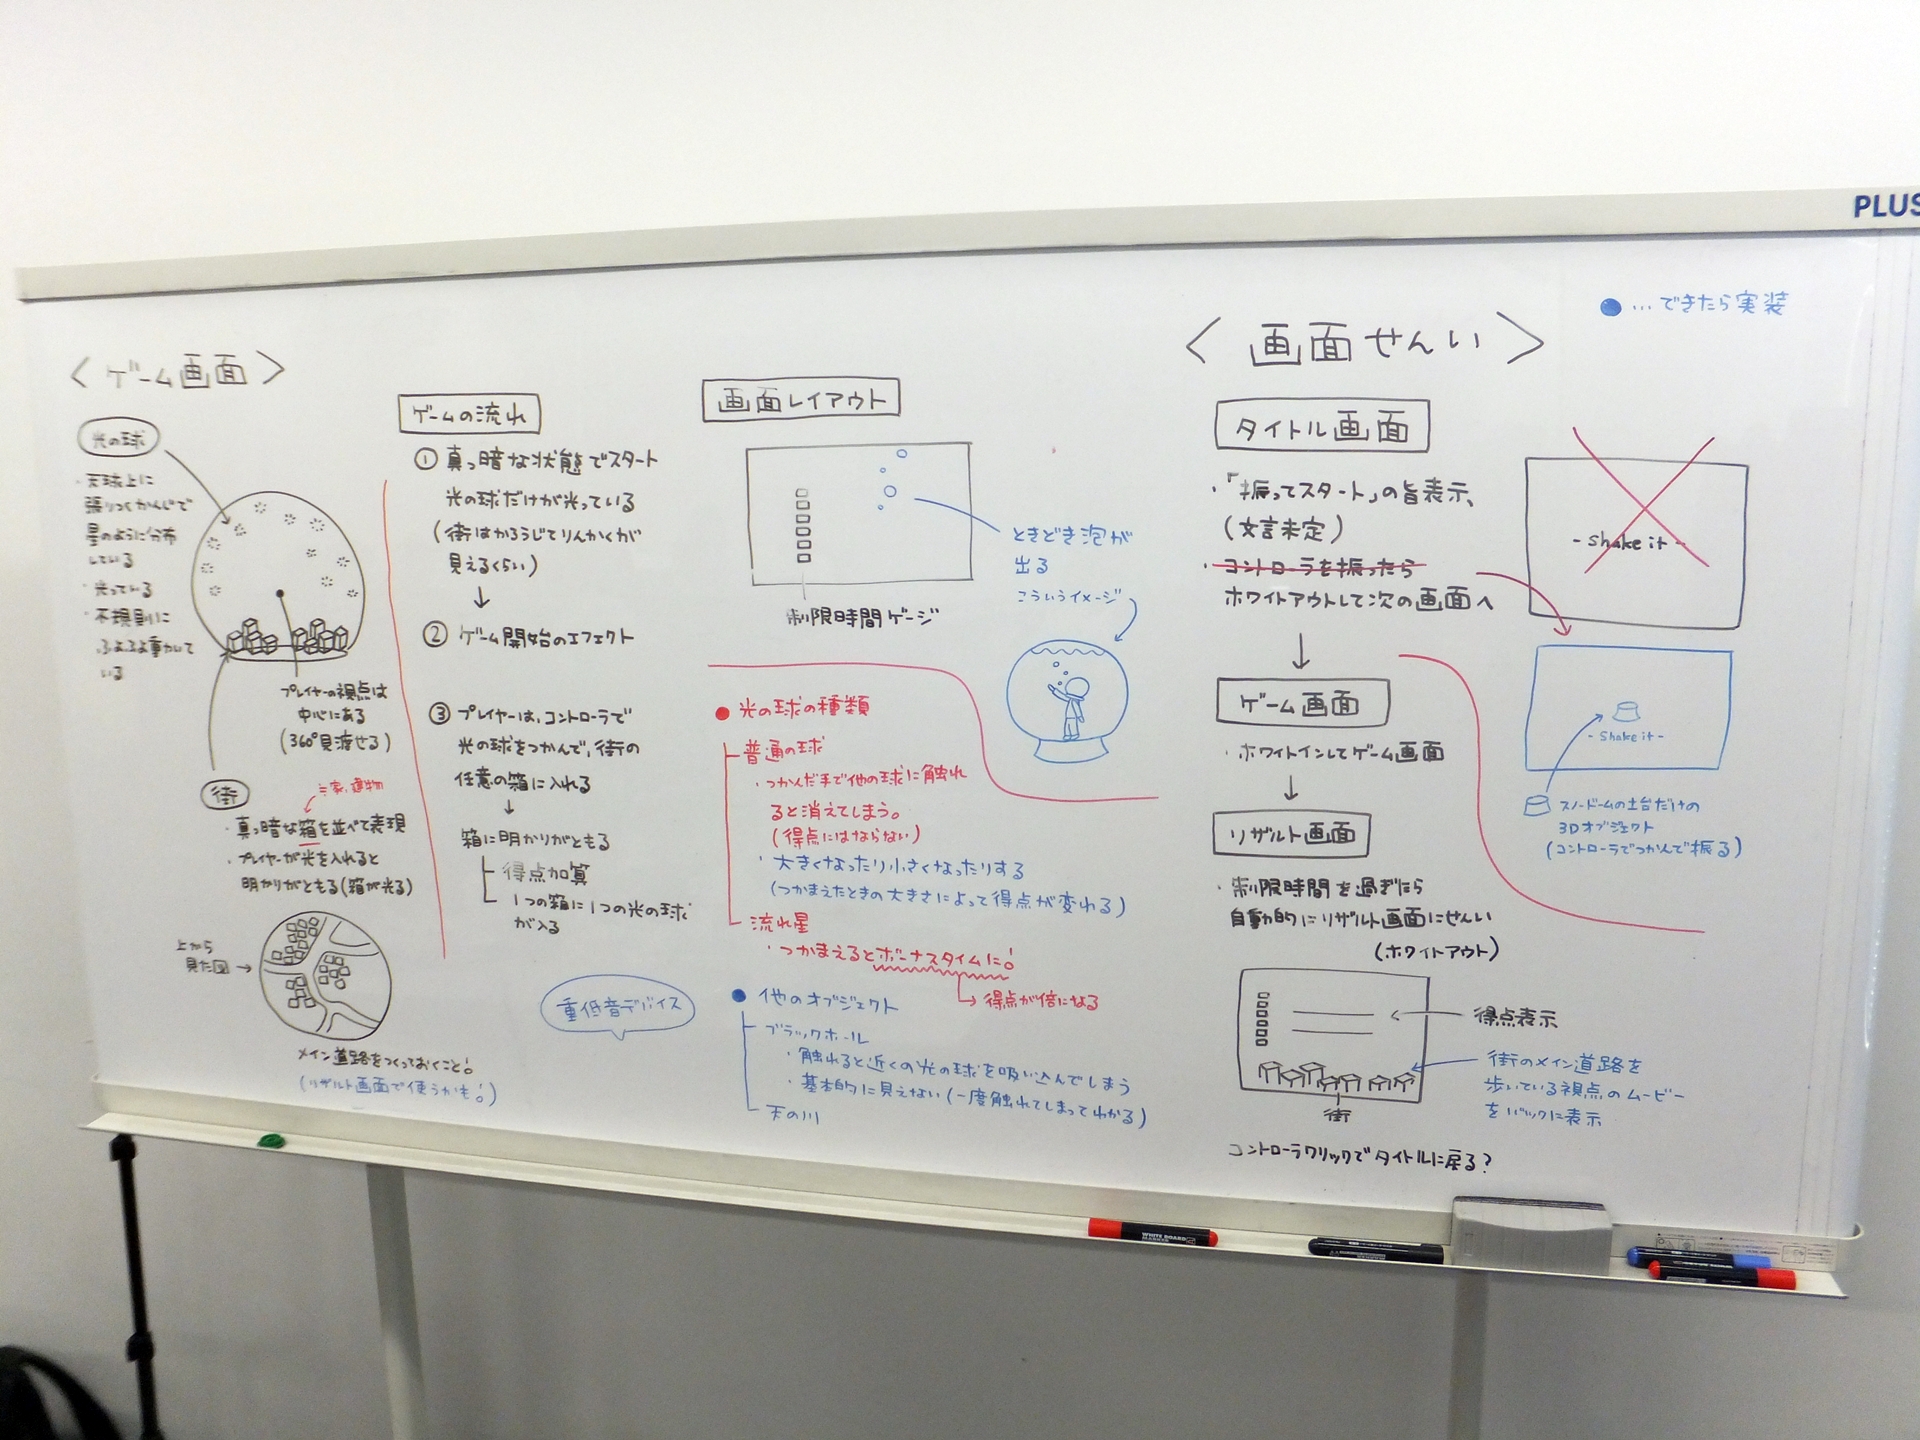 PLUS
●…できたら実装
〈ゲーム画面〉
光の球
・天球上に
張りつくかんじで
星のように分布
している
・光っている
・不規則に
ふよふよ動いて
いる
プレイヤーの視点は
中心にある
(360°見渡せる)
街
≒家、建物
・真っ暗な箱を並べて表現
・プレイヤーが光を入れると
明かりがともる(箱が光る)
上から
見た図→
メイン道路をつくっておくこと!
(リザルト画面で使うかも!)
ゲームの流れ
① 真っ暗な状態でスタート
光の球だけが光っている
(街はかろうじてりんかくが
見えるくらい)
↓
② ゲーム開始のエフェクト
③ プレイヤーは、コントローラで
光の球をつかんで、街の
任意の箱に入れる
↓
箱に明かりがともる
得点加算
1つの箱に1つの光の球
が入る
重低音デバイス
画面レイアウト
制限時間ゲージ
ときどき泡が
出る
こういうイメージ
●光の球の種類
普通の球
・つかんだ手で他の球に触れ
ると消えてしまう。
(得点にはならない)
・大きくなったり小さくなったりする
(つかまえたときの大きさによって得点が変わる)
流れ星
・つかまえるとボーナスタイムに!
→得点が倍になる
●他のオブジェクト
ブラックホール
・触れると近くの光の球を吸い込んでしまう
・基本的に見えない(一度触れてしまってわかる)
天の川
〈画面せんい〉
タイトル画面
・「振ってスタート」の旨表示、
(文言未定)
・コントローラを振ったら
ホワイトアウトして次の画面へ
- Shake it -
- Shake it -
スノードームの土台だけの
3Dオブジェクト
(コントローラでつかんで振る)
↓
ゲーム画面
・ホワイトインしてゲーム画面
↓
リザルト画面
・制限時間を過ぎたら
自動的にリザルト画面にせんい
(ホワイトアウト)
得点表示
街のメイン道路を
歩いている視点のムービー
をバックに表示
街
コントローラクリックでタイトルに戻る?
WHITE BOARD
MARKER